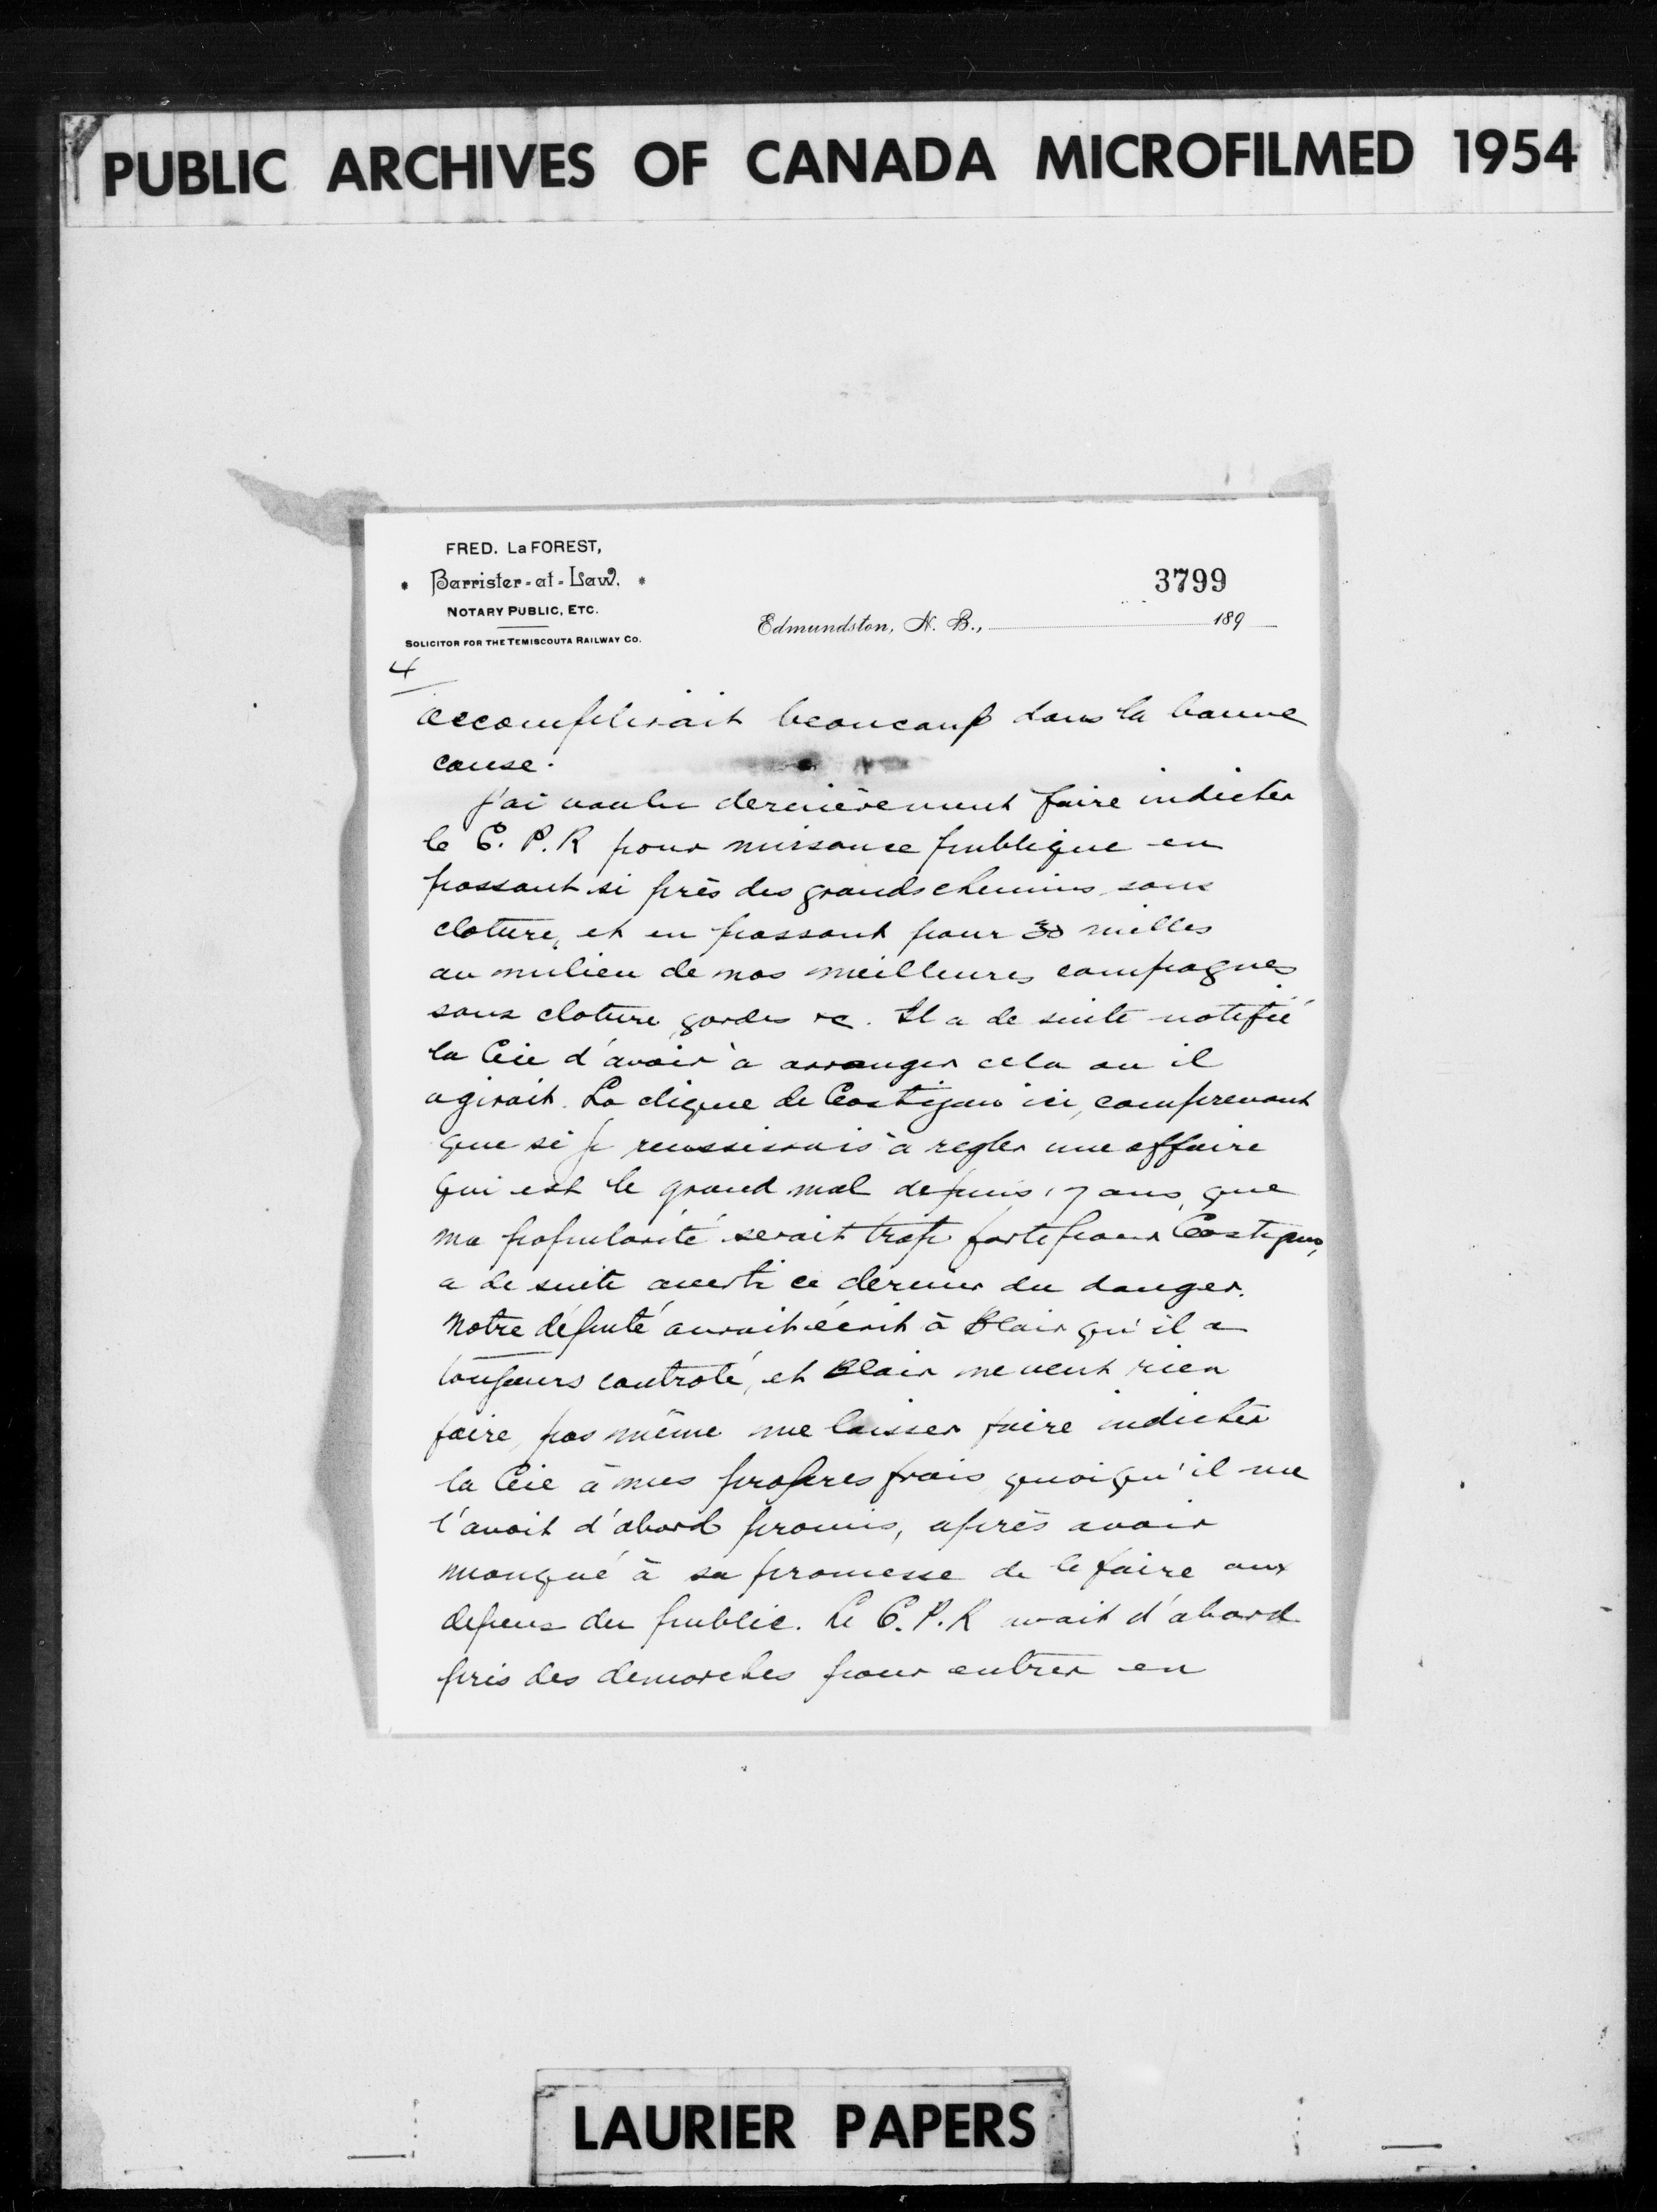 PUBLIC ARCHIVES OF CANADA MICROFILMED 1954
FRED. LaFOREST,
* Barrister-at-Law. *
NOTARY PUBLIC, ETC.
SOLICITOR FOR THE TEMISCOUTA RAILWAY CO.
3799
Edmundston, N. B., 189
4
accomplirait beaucoup dans la bonne
cause.
J'ai voulu dernièrement faire indicter
le C. P. R pour nuisance publique en
passant si près des grands chemins sans
cloture, et en passant pour 30 milles
au milieu de nos meilleures campagnes
sans cloture, gardes &c. Il a de suite notifié
la Cie d'avoir à arranger cela ou il
agirait. La clique de Costigan ici, comprenant
que si je reussissais à regler une affaire
qui est le grand mal depuis 17 ans, que
ma popularité serait trop forte pour Costigan,
a de suite averti ce dernier du danger.
Notre député aurait écrit à Blair qu'il a
toujours controlé, et Blair ne veut rien
faire, pas même me laisser faire indicter
la Cie à mes propres frais quoiqu'il me
l'avait d'abord promis, après avoir
manqué à sa promesse de le faire aux
depens du public. Le C.P.R avait d'abord
pris des demarches pour entrer en
LAURIER PAPERS